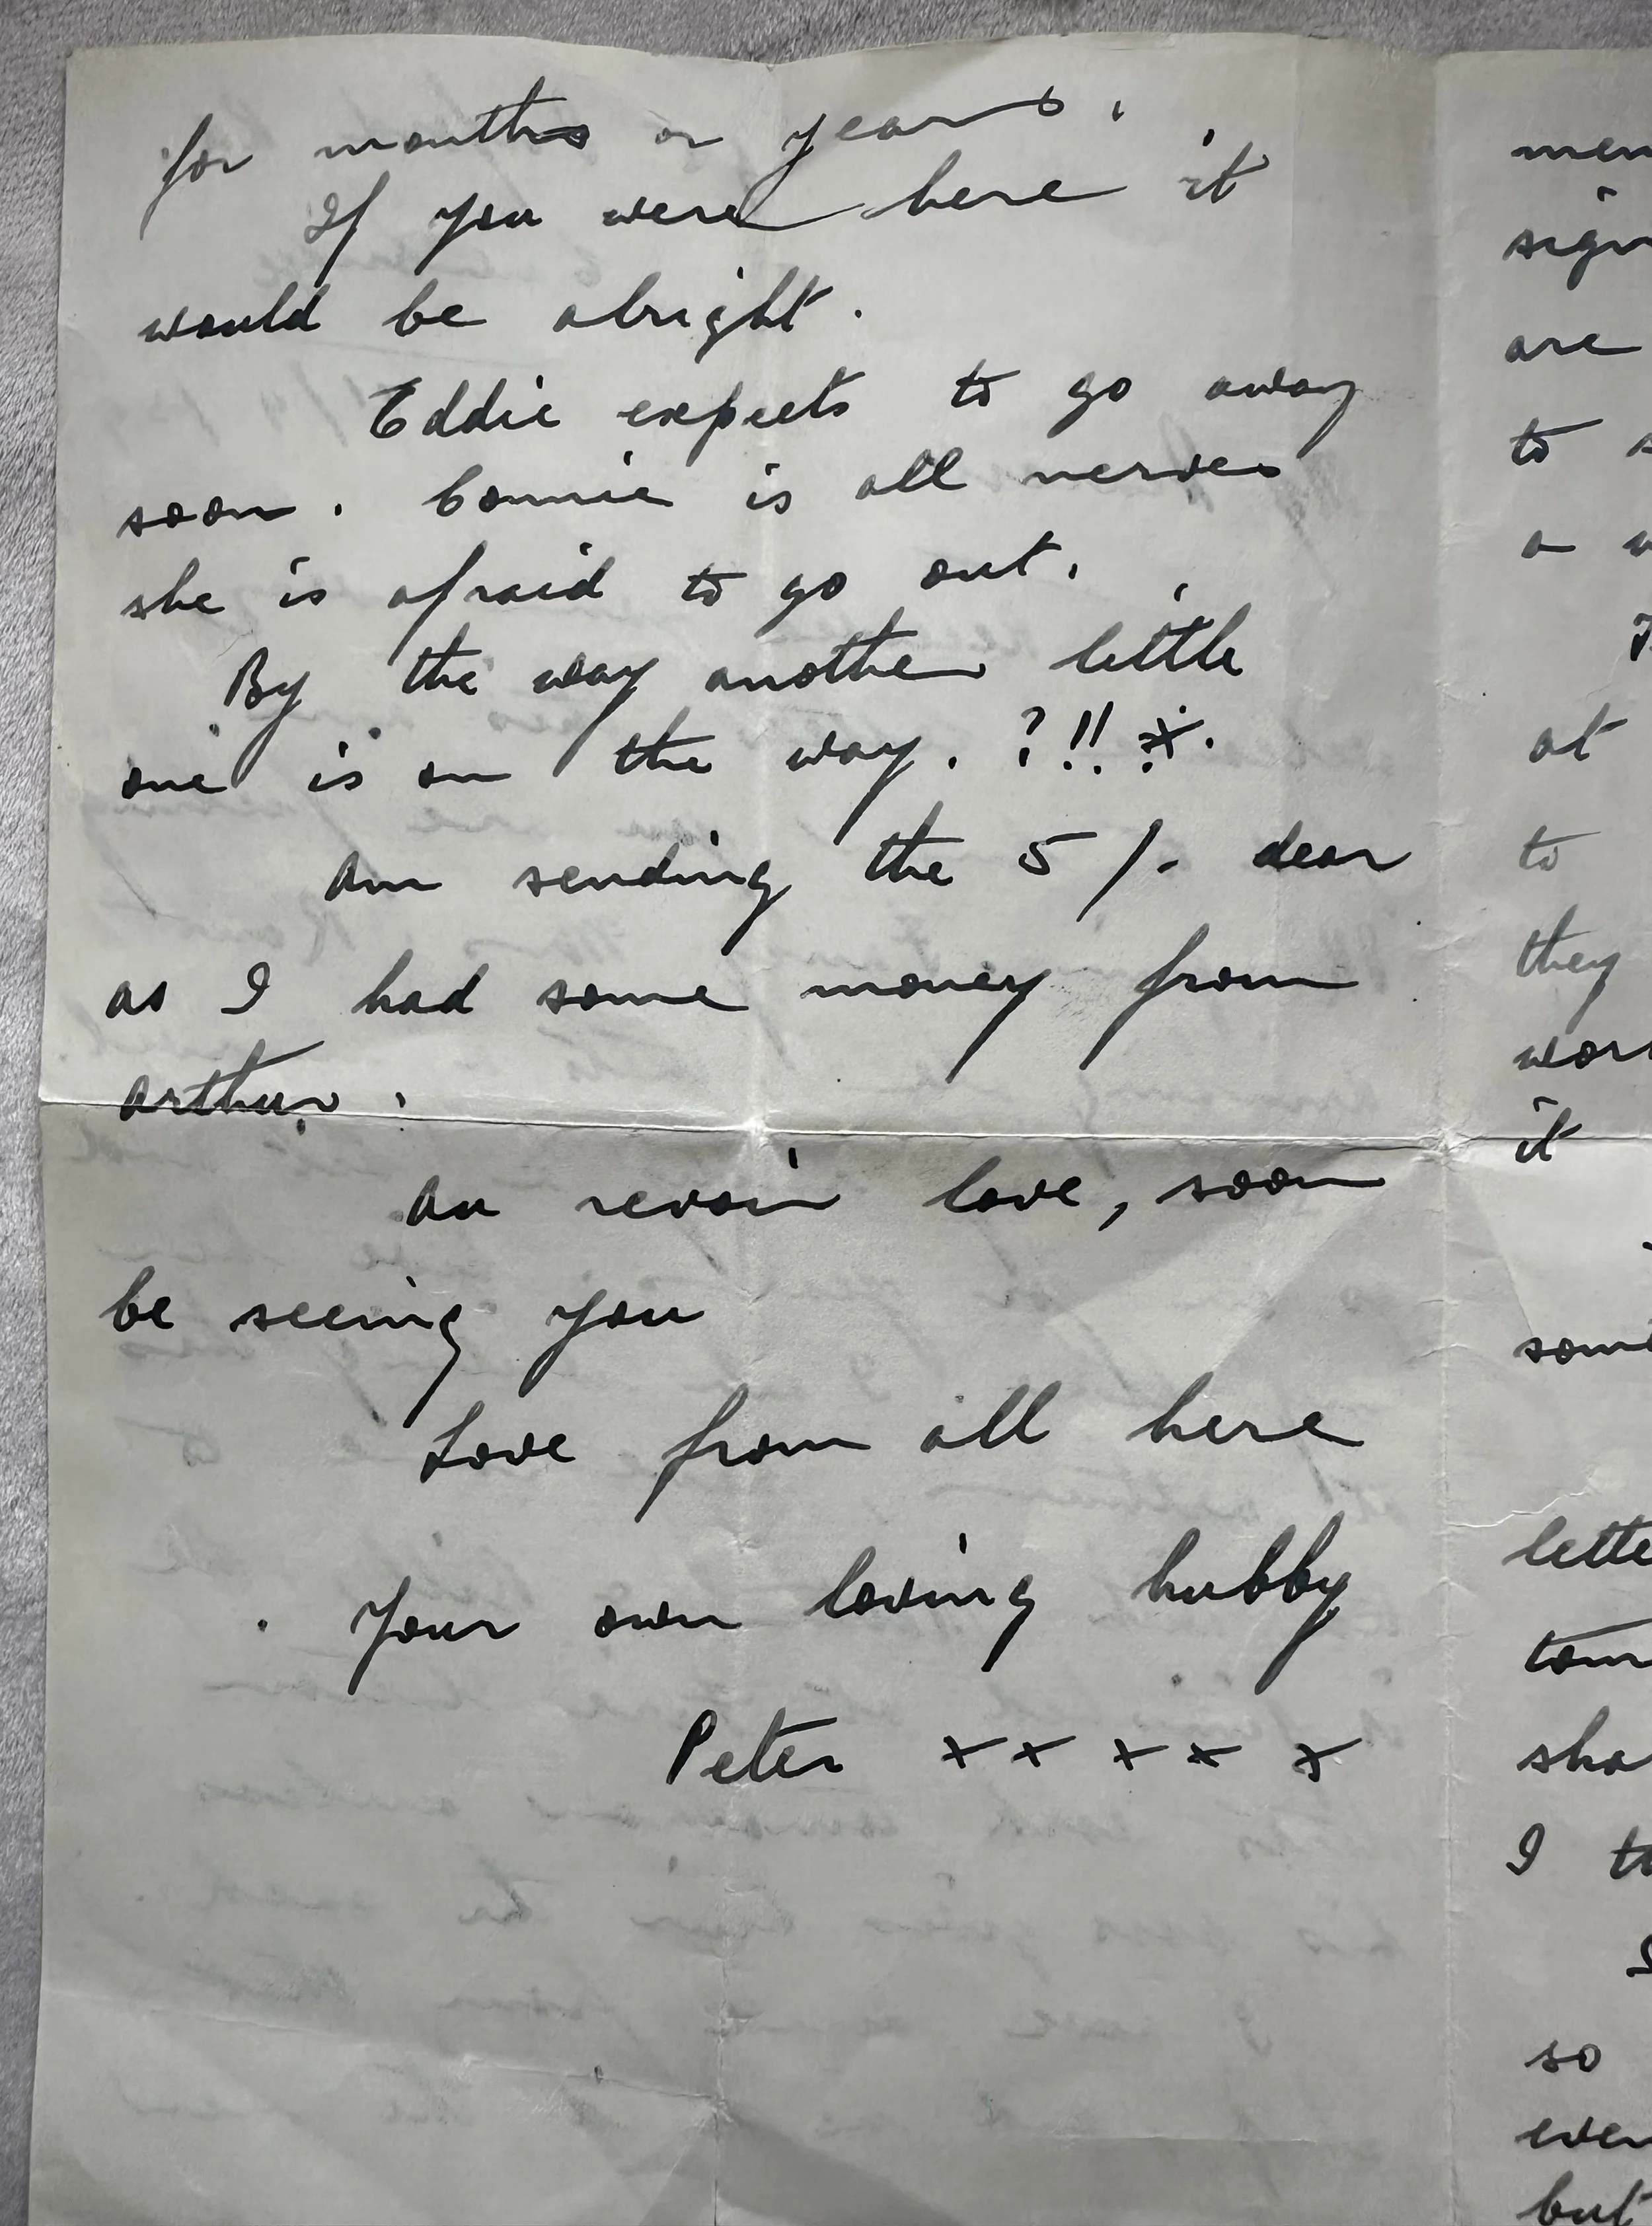 for months or years.
If you were here it
would be alright.
Eddie expects to go away
soon. Connie is all nerves
she is afraid to go out.
By the way another little
one is on the way. ?!! *.
Am sending the 5/- dear
as I had some money from
Arthur.
Au revoir love, soon
be seeing you
Love from all here
Your own loving hubby
Peter x x x x x
men
sign
are
to s
a w
at
to
they
wor
it
some
lette
tom
sha
I th
so
even
but